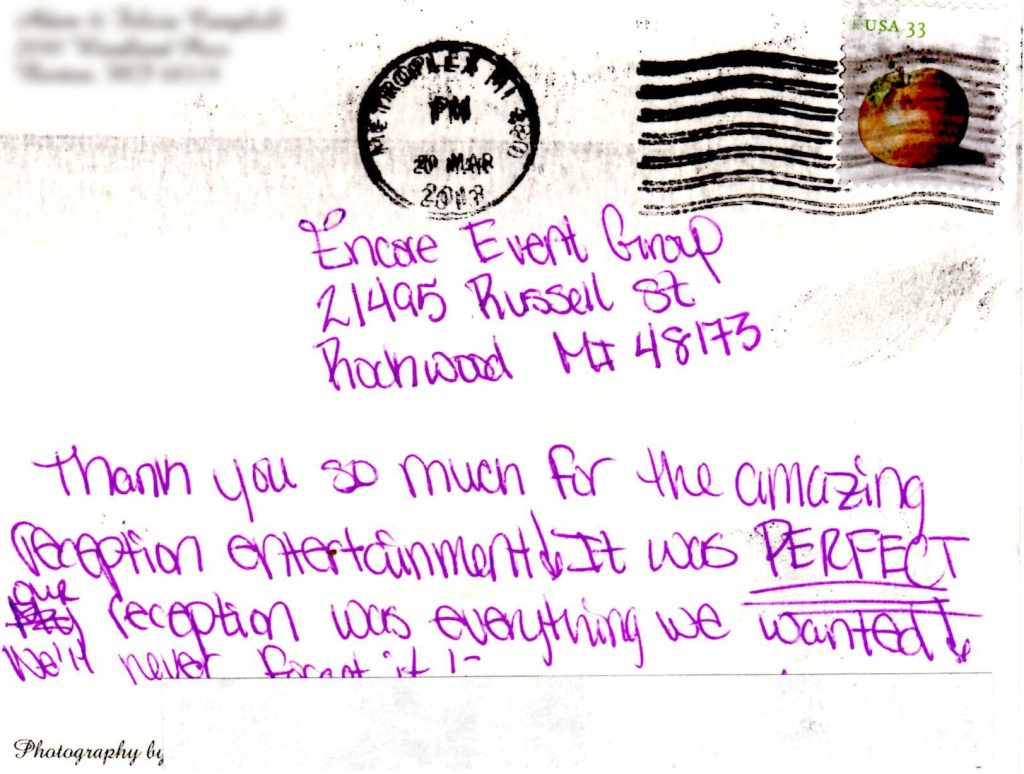 USA 33
METROPLEX MI 480
PM
20 MAR
2013
Encore Event Group
21495 Russell St
Rockwood MI 48173
Thank you so much for the amazing
reception entertainment! It was PERFECT
our reception was everything we wanted!
We'll never forget it!
Photography by